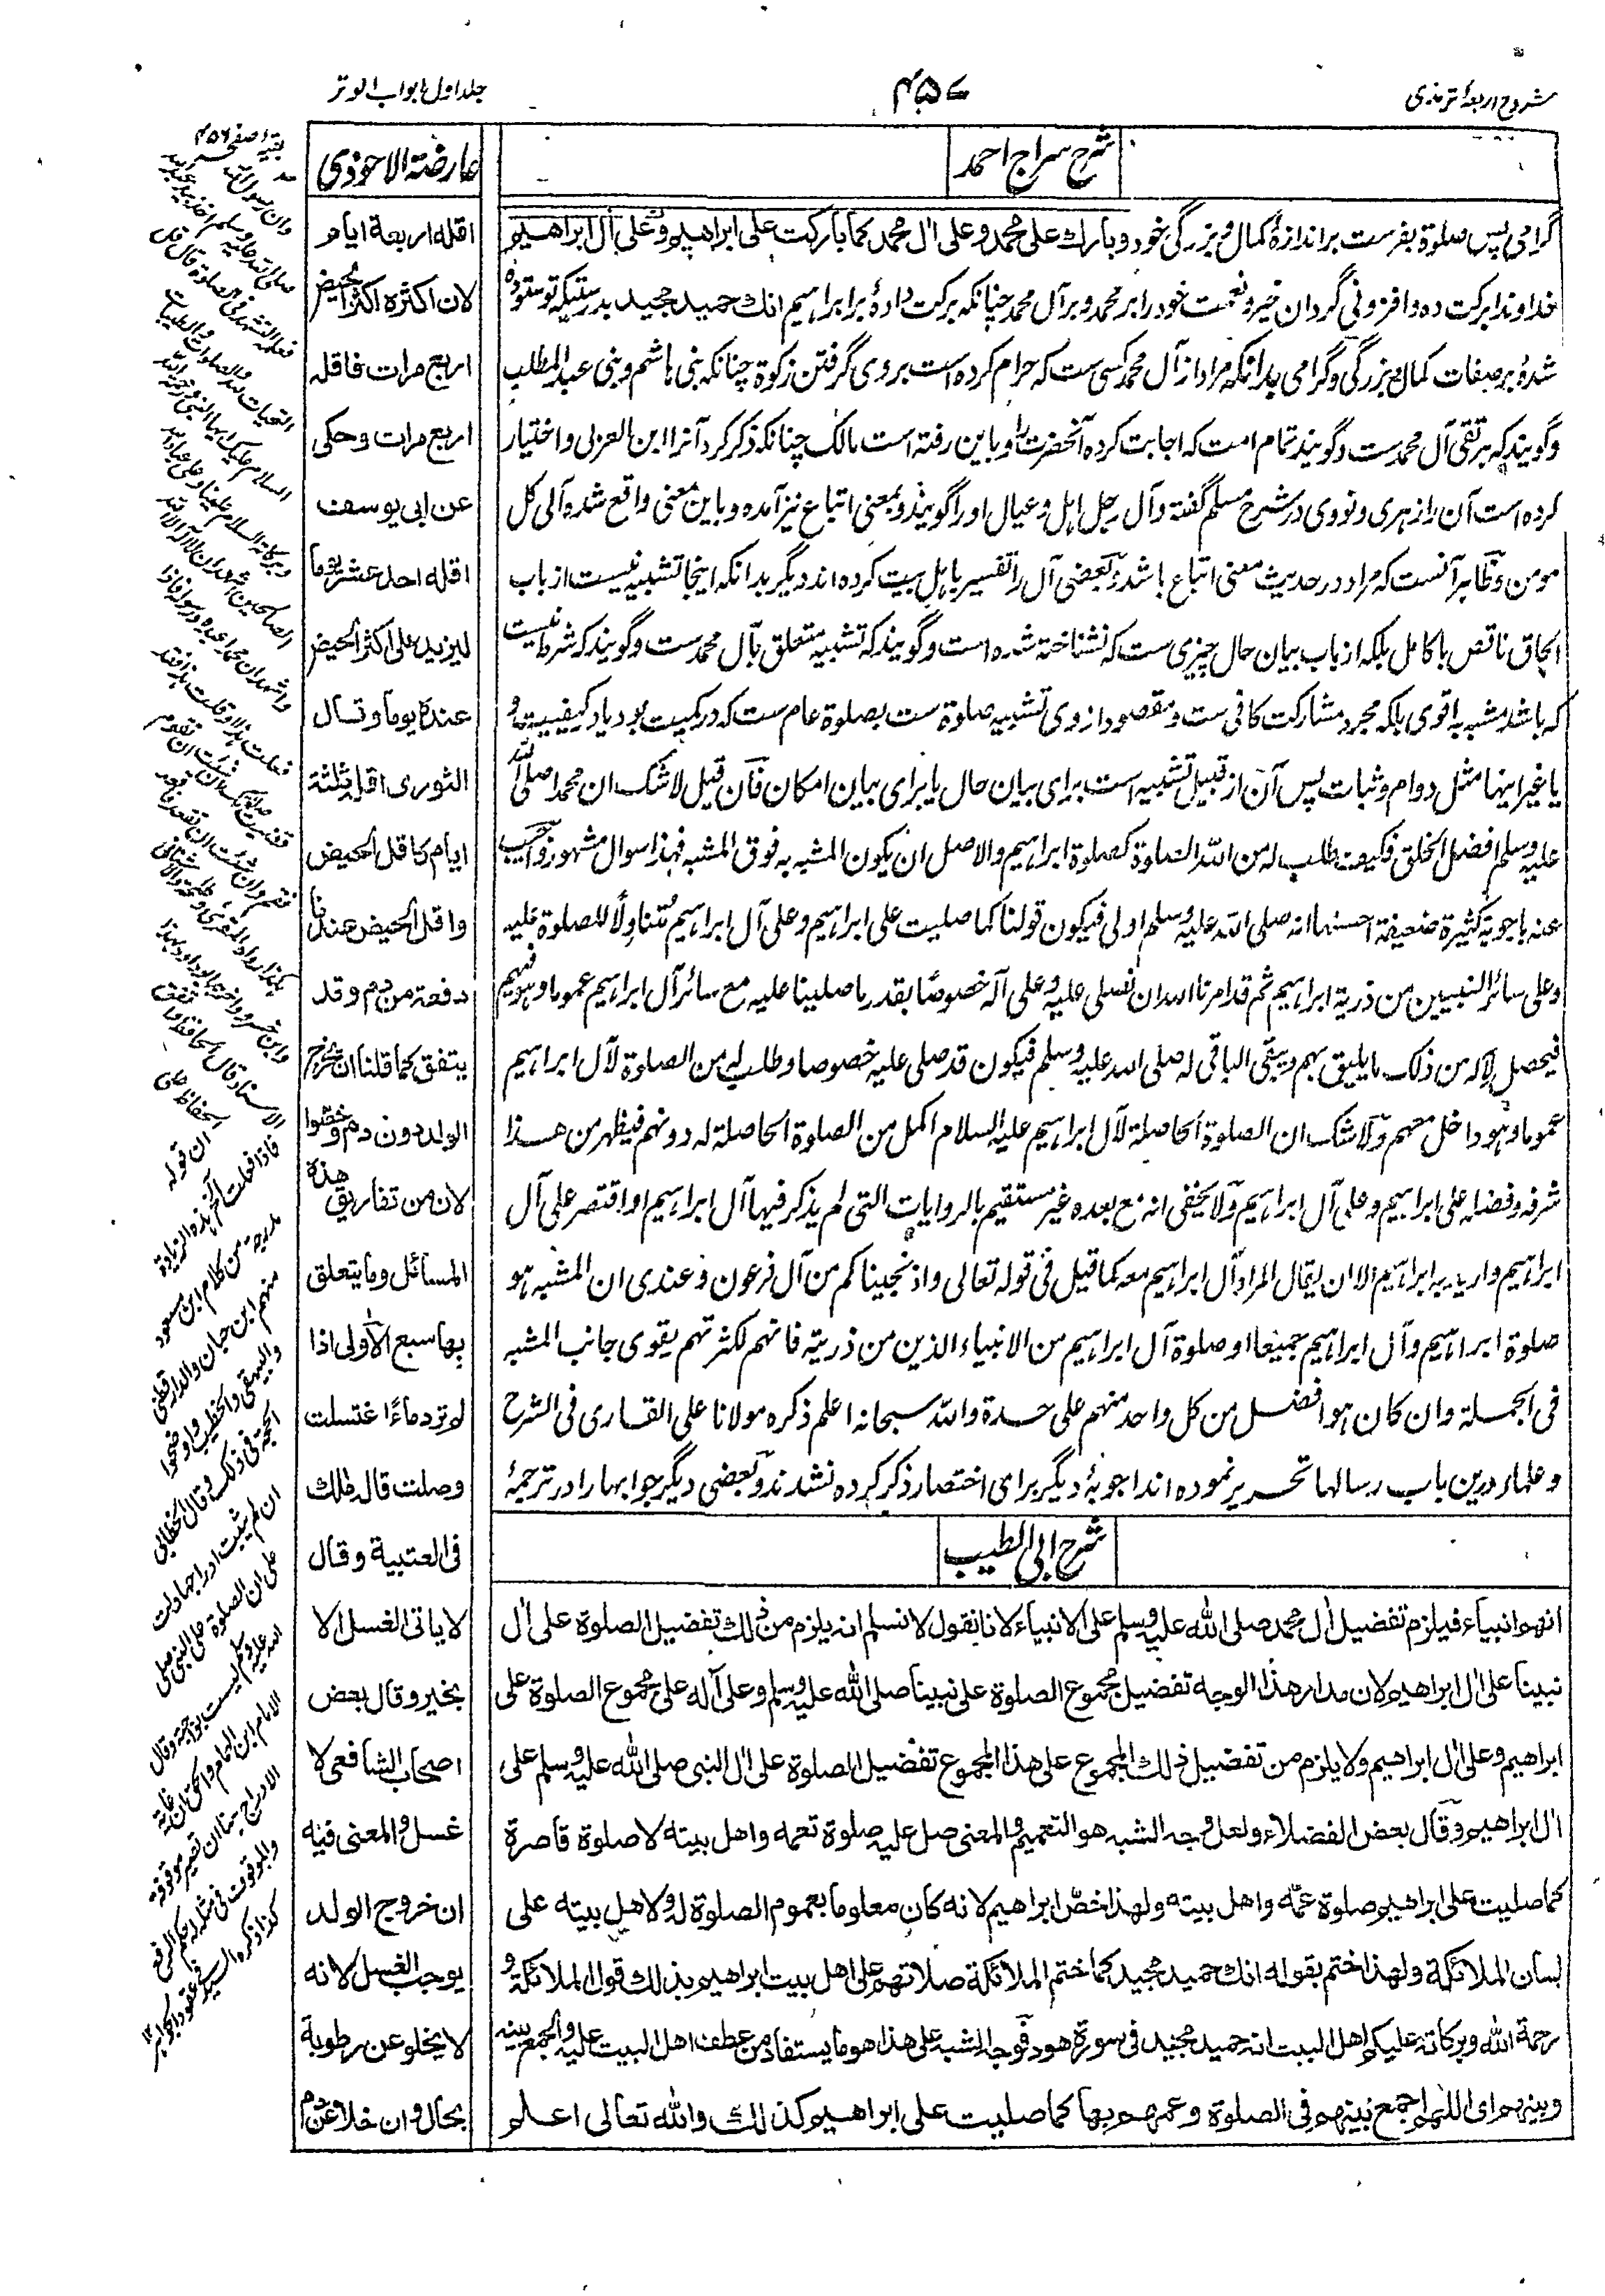 شروح اربعهٔ ترمذی
۴۵۷
جلد اول ابواب الوتر
شرح سراج احمد
گرامی پس صلوة بفرست براندازهٔ کمال و بزرگی خود و بارك على محمد وعلى ال محمد كما باركت على ابراهيم وعلى ال ابراهيم
خداوندا برکت ده و افزونی گردان خیر و نعمت خود را بر محمد و بر آل محمد چنانکه برکت دادهٔ بر ابراهیم انك حميد مجيد بدرستیکه تو ستوده
شدهٔ بر صفات کمال و بزرگی و گرامی بدانکه مراد از آل محمد کسی ست که حرام کرده است بروی گرفتن زکوة چنانکه بنی هاشم و بنی عبد المطلب
و گویند که هر تقی آل محمد ست و گویند تمام امت که اجابت کرده آنحضرت را و باین رفته است مالک چنانکه ذکر کرد آنرا ابن العربی و اختیار
کرده است آن را زهری و نووی در شرح مسلم گفته و آل رجل اهل و عیال او را گویند و بمعنی اتباع نیز آمده و باین معنی واقع شده آلی کل
مومن و ظاهر آنست که مراد در حدیث معنی اتباع باشد و بعضی آل را تفسیر باهل بیت کرده اند دیگر بدانکه اینجا تشبیه نیست از باب
الحاق ناقص با کامل بلکه از باب بیان حال چیزی ست که نشناخته شده است و گویند که تشبیه متعلق بآل محمد ست و گویند که شرط نیست
که باشد مشبه به اقوی بلکه مجرد مشارکت کافی ست و مقصود ازوی تشبیه صلوة ست بصلوة عام ست که در کمیت بود یا در کیفیت و
یا غیر اینها مثل دوام و ثبات پس آن از قبیل تشبیه است برای بیان حال یا برای بیان امکان فان قيل لا شك ان محمدا صلى الله
عليه وسلم افضل الخلق فكيف طلب له من الله الصلوة كصلوة ابراهيم والاصل ان يكون المشبه به فوق المشبه فهذا سوال مشهور واجيب
عنه باجوبة كثيرة ضعيفة احسنها انه صلى الله عليه وسلم اولى فيكون قولنا كما صليت على ابراهيم وعلى آل ابراهيم متناولا للصلوة عليه
وعلى سائر النبيين من ذرية ابراهيم ثم قد امرنا الله ان نصلى عليه وعلى آله خصوصا بقدر ما صلينا عليه مع سائر آل ابراهيم عموما وهو فيهم
فيحصل لآله من ذلك ما يليق بهم ويبقى الباقى له صلى الله عليه وسلم فيكون قد صلى عليه خصوصا وطلب له من الصلوة لآل ابراهيم
عموما وهو داخل معهم ولا شك ان الصلوة الحاصلة لآل ابراهيم عليه السلام اكمل من الصلوة الحاصلة له دونهم فيظهر من هذا
شرفه وفضله على ابراهيم وعلى آل ابراهيم ولا يخفى انه مع بعده غير مستقيم بالروايات التى لم يذكر فيها آل ابراهيم او اقتصر على آل
ابراهيم واريد به ابراهيم الا ان يقال المراد آل ابراهيم معه كما قيل فى قوله تعالى واذ نجيناكم من آل فرعون وعندى ان المشبه هو
صلوة ابراهيم وآل ابراهيم جميعا او صلوة آل ابراهيم من الانبياء الذين من ذريته فانهم لكثرتهم يقوى جانب المشبه
فى الجملة وان كان هو افضل من كل واحد منهم على حدة والله سبحانه اعلم ذكره مولانا على القارى فى الشرح
و علما در ین باب رسالها تحریر نموده اند اجوبهٔ دیگر برای اختصار ذکر کرده نشدند و بعضی دیگر جوابها را در ترجمهٔ
شرح ابى الطيب
انهم انبياء فيلزم تفضيل ال محمد صلى الله عليه وسلم على الانبياء لانا نقول لا نسلم انه يلزم من ذلك تفضيل الصلوة على ال
نبينا على ال ابراهيم لان مدار هذا الوجه تفضيل مجموع الصلوة على نبينا صلى الله عليه وسلم وعلى آله على مجموع الصلوة على
ابراهيم وعلى ال ابراهيم ولا يلزم من تفضيل ذلك المجموع على هذا المجموع تفضيل الصلوة على ال النبى صلى الله عليه وسلم على
ال ابراهيم وقال بعض الفضلاء ولعل وجه الشبه هو التعميم والمعنى صل عليه صلوة تعمه واهل بيته لا صلوة قاصرة
كما صليت على ابراهيم صلوة عمته واهل بيته ولهذا خص ابراهيم لانه كان معلوما بعموم الصلوة له ولاهل بيته على
لسان الملائكة ولهذا ختم بقوله انك حميد مجيد كما ختم الملائكة صلاتهم على اهل بيت ابراهيم بذلك قول الملائكة و
رحمة الله وبركاته عليكم اهل البيت انه حميد مجيد فى سورة هود فوجه الشبه على هذا هو ما يستفاد من عطف اهل البيت عليه والجمع بينه
وبينهم اى اللهم اجمع بينهم فى الصلوة وعمهم بها كما صليت على ابراهيم كذلك والله تعالى اعلم
عارضة الاحوذى
اقله اربعة ايام
لان اكثره اكثر الحيض
اربع مرات فاقله
اربع مرات وحكى
عن ابى يوسف
اقله احد عشر يوما
ليزيد على اكثر الحيض
عنده يوما وقال
الثورى اقله ثلثة
ايام كاقل الحيض
واقل الحيض عندنا
دفعة من دم وقد
يتفق كما قلنا ان يخرج
الولد دون دم وحققوا
هذه
لان من تفاريق
المسائل وما يتعلق
بها سبع الاولى اذا
لم تر دماءً اغتسلت
وصلت قال مالك
فى العتبية وقال
لا ياتى الغسل الا
بخير وقال بعض
اصحاب الشافعى لا
غسل والمعنى فيه
ان خروج الولد
يوجب الغسل لانه
لا يخلو عن رطوبة
بحال وان خلا عن دم
بقية صفحه ۴۵۶
وان رسول الله
صلى الله عليه وسلم اخذ بيد عبد الله
فعلمه التشهد فى الصلوة قال قل
التحيات لله والصلوات والطيبات
السلام عليك ايها النبى ورحمة الله
وبركاته السلام علينا وعلى عباد الله
الصالحين اشهد ان لا اله الا الله
واشهد ان محمدا عبده ورسوله فاذا
فعلت هذا او قلت هذا فقد
قضيت صلوتك ان شئت ان تقوم
فقم وان شئت ان تقعد فاقعد
الاسناد قال الحافظ
الحفاظ على
ان قوله
فاذا فعلت آخره هذه الزيادة
مدرجة من كلام ابن مسعود
منهم ابن حبان والدارقطنى
والبيهقى والخطيب واوضحوا
الحجة فى ذلك وقال الخطابى
على ان الصلوة على النبى صلى
الله عليه وسلم ليست بواجبة وقال
الامام ابن الهمام والحق ان غاية
الادراج هنا ان تصير موقوفة
والموقوف فى مثله له حكم الرفع
كذا ذكره السيد فى عقود الجواهر ١٢